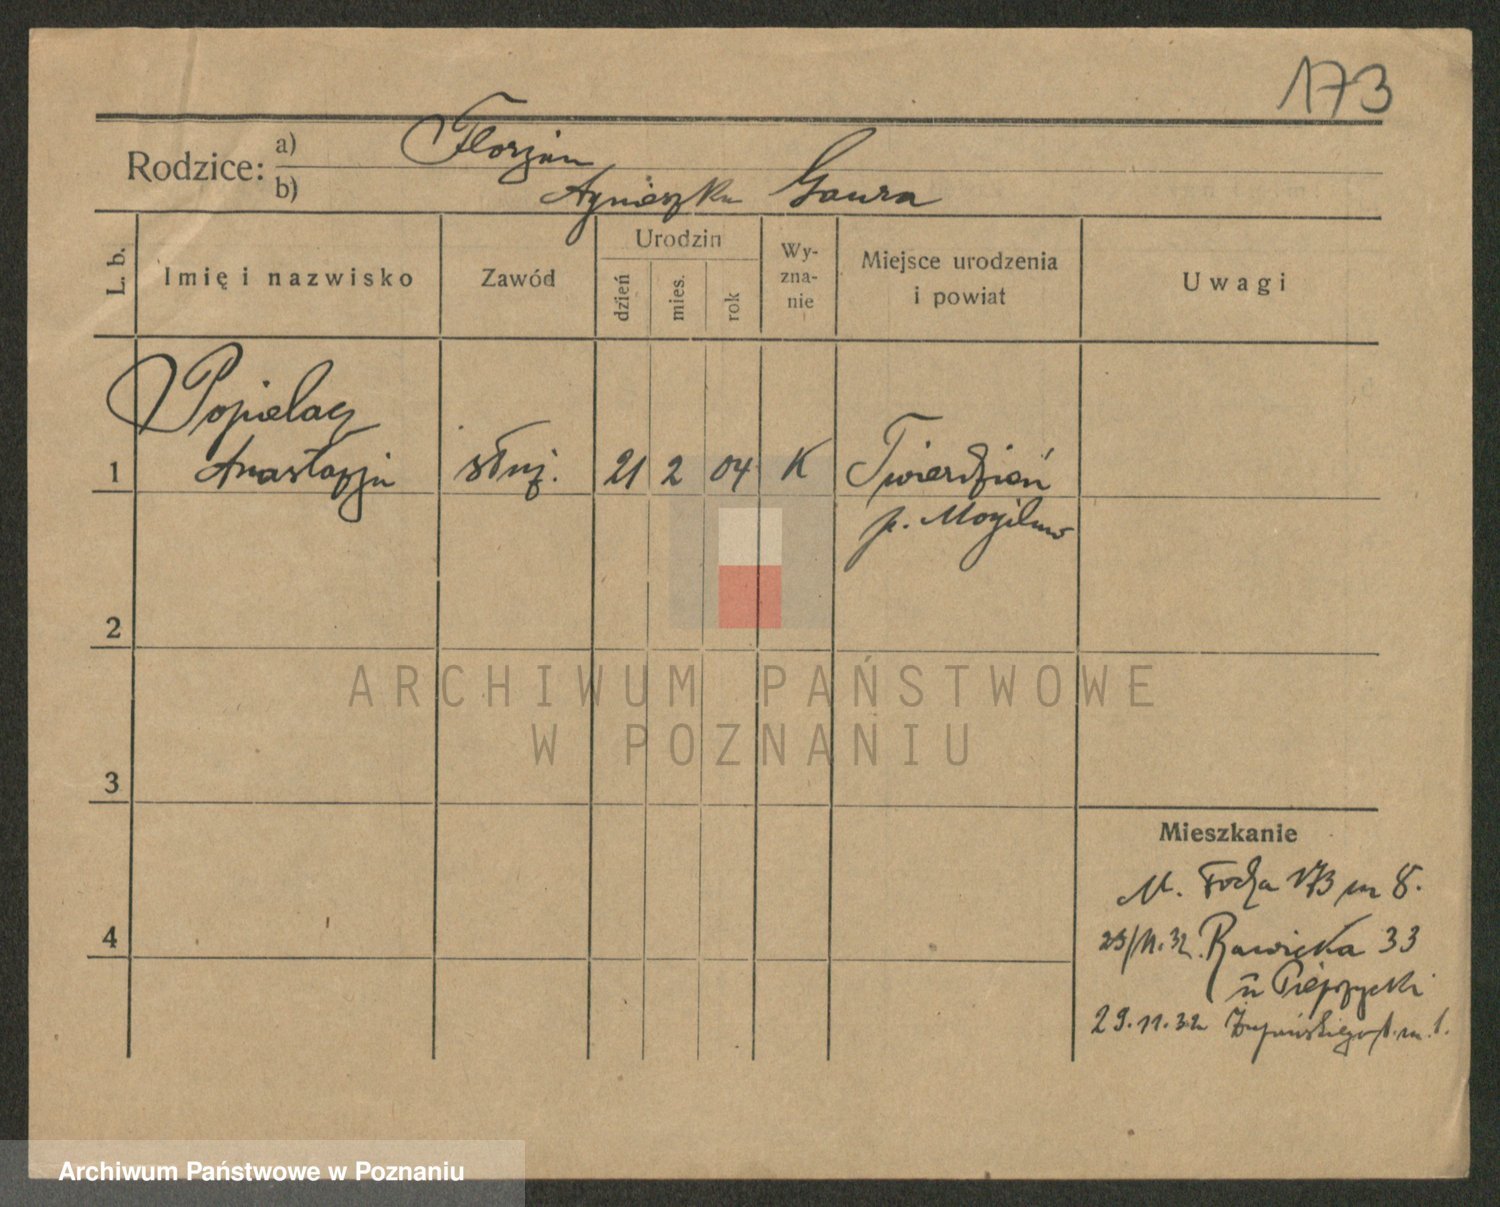 173
Rodzice: a) Florjan
b) Agnieszka Gawra
L. b.
Imię i nazwisko
Zawód
Urodzin
dzień
mies.
rok
Wy-
zna-
nie
Miejsce urodzenia
i powiat
Uwagi
Popielacz
1 Anastazja służ. 21 2 04 K Twierdzień
p. Mogilno
2
3
4
ARCHIWUM PAŃSTWOWE
W POZNANIU
Mieszkanie
M. Focha 173 m 8.
25/11.32. Rawicka 33
u
29.11.32 Żupańskiego 1. m. 1.
Archiwum Państwowe w Poznaniu